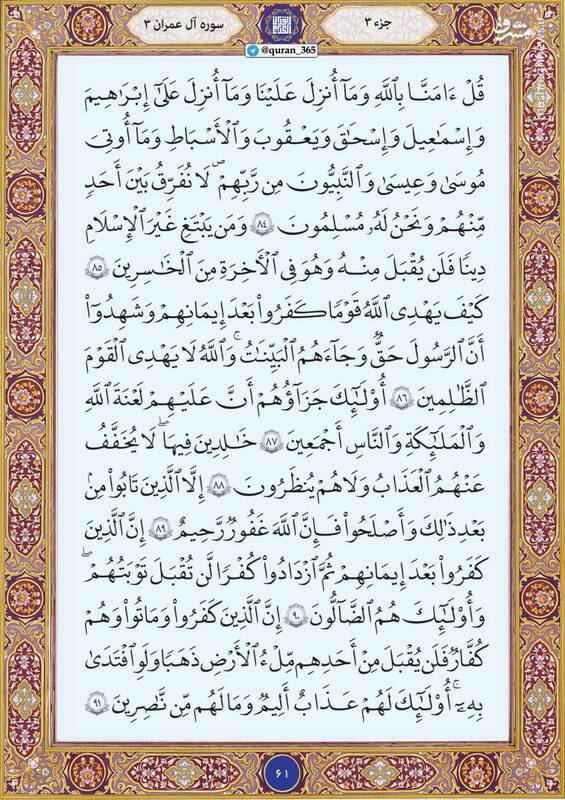 جزء ٣
سوره آل عمران ٣
@quran_365
قُلْ ءَامَنَّا بِٱللَّهِ وَمَآ أُنزِلَ عَلَيْنَا وَمَآ أُنزِلَ عَلَىٰٓ إِبْرَٰهِيمَ
وَإِسْمَٰعِيلَ وَإِسْحَٰقَ وَيَعْقُوبَ وَٱلْأَسْبَاطِ وَمَآ أُوتِيَ
مُوسَىٰ وَعِيسَىٰ وَٱلنَّبِيُّونَ مِن رَّبِّهِمْ لَا نُفَرِّقُ بَيْنَ أَحَدٍ
مِّنْهُمْ وَنَحْنُ لَهُۥ مُسْلِمُونَ ٨٤ وَمَن يَبْتَغِ غَيْرَ ٱلْإِسْلَٰمِ
دِينًا فَلَن يُقْبَلَ مِنْهُ وَهُوَ فِي ٱلْأَخِرَةِ مِنَ ٱلْخَٰسِرِينَ ٨٥
كَيْفَ يَهْدِي ٱللَّهُ قَوْمًا كَفَرُوا۟ بَعْدَ إِيمَٰنِهِمْ وَشَهِدُوٓا۟
أَنَّ ٱلرَّسُولَ حَقٌّ وَجَآءَهُمُ ٱلْبَيِّنَٰتُ ۚ وَٱللَّهُ لَا يَهْدِي ٱلْقَوْمَ
ٱلظَّٰلِمِينَ ٨٦ أُو۟لَٰٓئِكَ جَزَآؤُهُمْ أَنَّ عَلَيْهِمْ لَعْنَةَ ٱللَّهِ
وَٱلْمَلَٰٓئِكَةِ وَٱلنَّاسِ أَجْمَعِينَ ٨٧ خَٰلِدِينَ فِيهَا لَا يُخَفَّفُ
عَنْهُمُ ٱلْعَذَابُ وَلَا هُمْ يُنظَرُونَ ٨٨ إِلَّا ٱلَّذِينَ تَابُوا۟ مِنۢ
بَعْدِ ذَٰلِكَ وَأَصْلَحُوا۟ فَإِنَّ ٱللَّهَ غَفُورٌ رَّحِيمٌ ٨٩ إِنَّ ٱلَّذِينَ
كَفَرُوا۟ بَعْدَ إِيمَٰنِهِمْ ثُمَّ ٱزْدَادُوا۟ كُفْرًا لَّن تُقْبَلَ تَوْبَتُهُمْ
وَأُو۟لَٰٓئِكَ هُمُ ٱلضَّآلُّونَ ٩٠ إِنَّ ٱلَّذِينَ كَفَرُوا۟ وَمَاتُوا۟ وَهُمْ
كُفَّارٌ فَلَن يُقْبَلَ مِنْ أَحَدِهِم مِّلْءُ ٱلْأَرْضِ ذَهَبًا وَلَوِ ٱفْتَدَىٰ
بِهِۦٓ ۗ أُو۟لَٰٓئِكَ لَهُمْ عَذَابٌ أَلِيمٌ وَمَا لَهُم مِّن نَّٰصِرِينَ ٩١
٦١